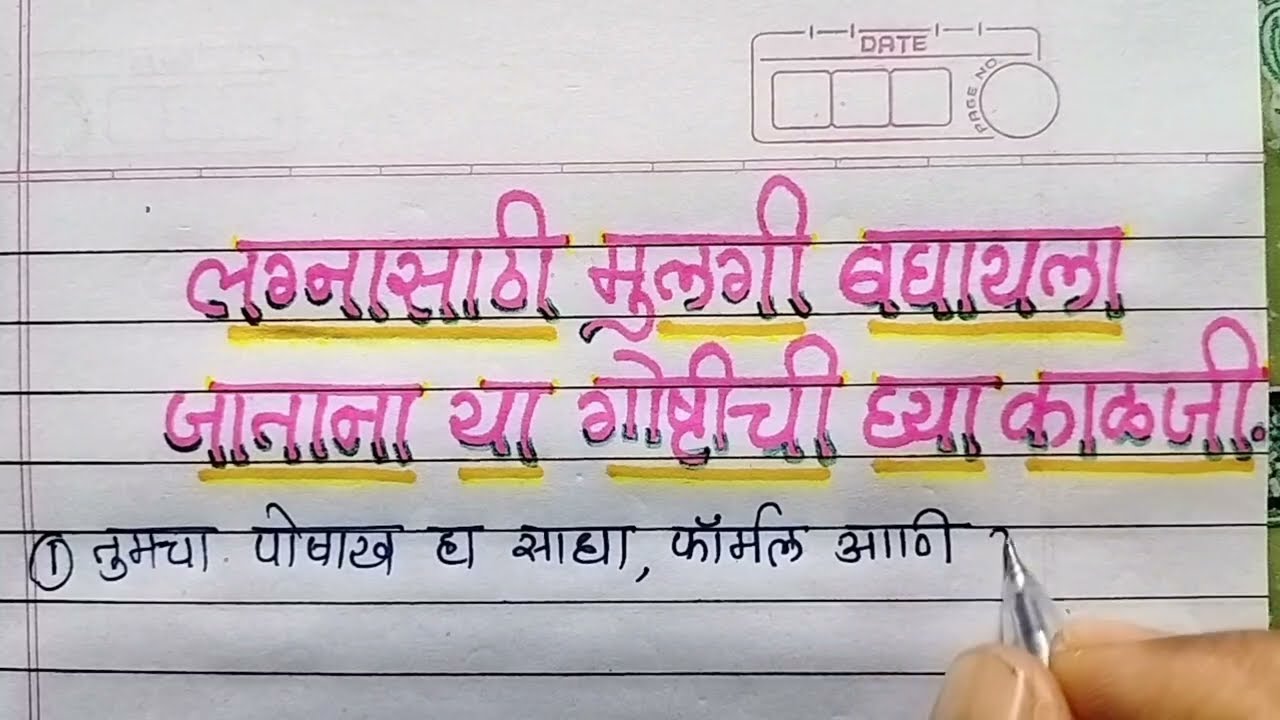 DATE
PAGE NO
लग्नासाठी मुलगी बघायला
जाताना या गोष्टीची घ्या काळजी.
① तुमचा पोषाख हा साधा, फॉर्मल आणि